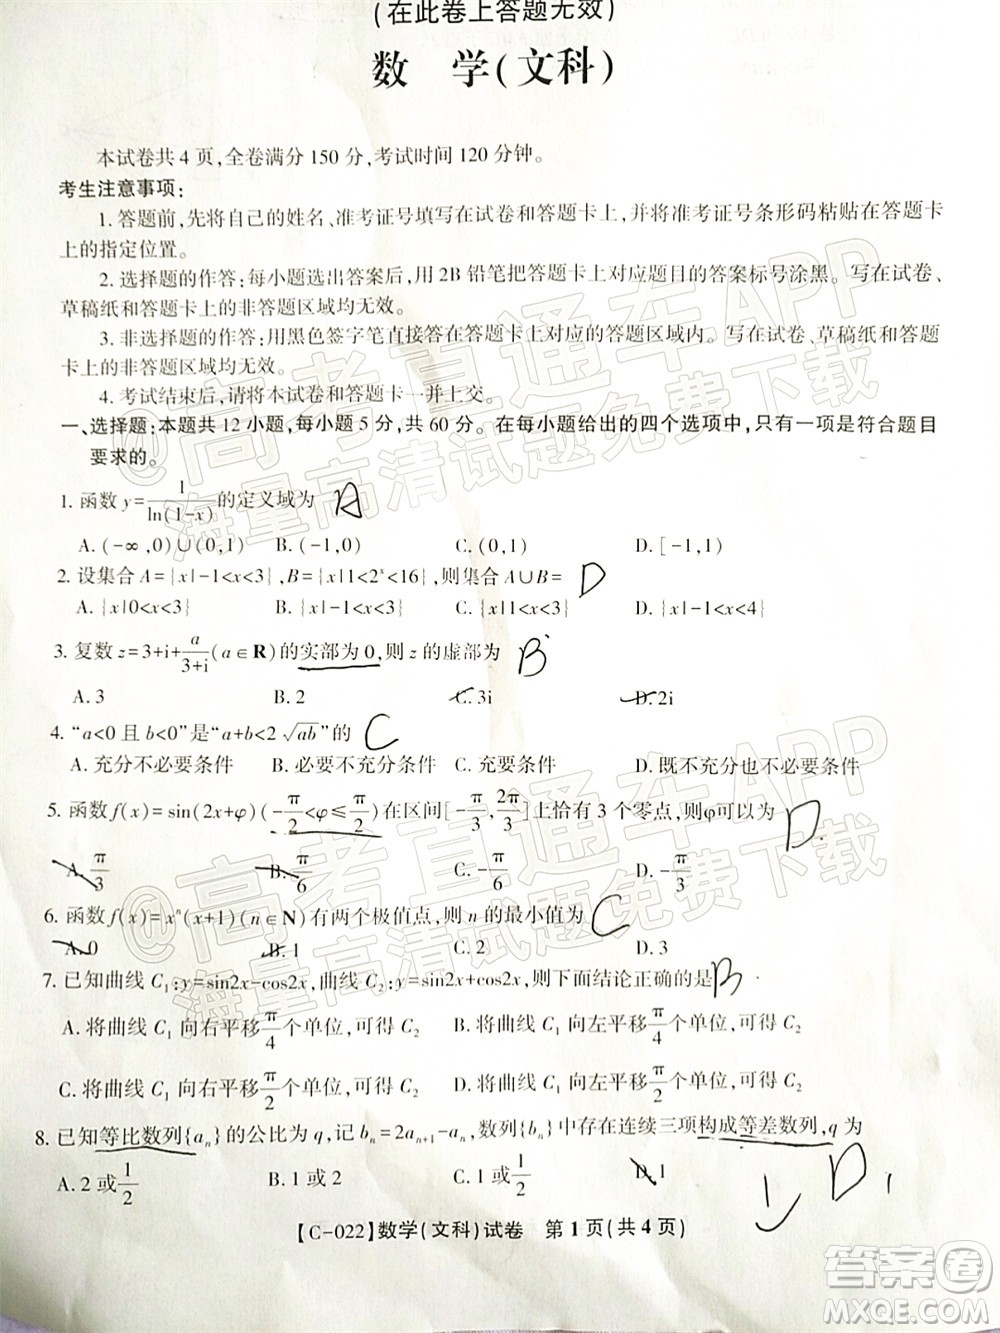 (在此卷上答题无效)
数 学(文科)
本试卷共4页,全卷满分150分,考试时间120分钟。
考生注意事项:
1. 答题前,先将自己的姓名、准考证号填写在试卷和答题卡上,并将准考证号条形码粘贴在答题卡
上的指定位置。
2. 选择题的作答:每小题选出答案后,用2B铅笔把答题卡上对应题目的答案标号涂黑。写在试卷、
草稿纸和答题卡上的非答题区域均无效。
3. 非选择题的作答:用黑色签字笔直接答在答题卡上对应的答题区域内。写在试卷、草稿纸和答题
卡上的非答题区域均无效。
4. 考试结束后,请将本试卷和答题卡一并上交。
一、选择题:本题共12小题,每小题5分,共60分。在每小题给出的四个选项中,只有一项是符合题目
要求的。
1. 函数 y=1/ln(1-x) 的定义域为 A
A. (-∞,0)∪(0,1) B. (-1,0) C. (0,1) D. [-1,1)
2. 设集合 A={x|-1<x<3},B={x|1<2ˣ<16},则集合 A∪B= D
A. {x|0<x<3} B. {x|-1<x<3} C. {x|-1<x<1} D. {x|-1<x<4}
3. 复数 z=3+i+a/(3+i) (a∈R)的实部为0,则 z 的虚部为 B
A. 3 B. 2 C. 3i D. 2i
4. “a<0 且 b<0”是“a+b<2√ab”的 C
A. 充分不必要条件 B. 必要不充分条件 C. 充要条件 D. 既不充分也不必要条件
5. 函数 f(x)=sin(2x+φ)(-π/2<φ≤π/2)在区间[-π/3,2π/3]上恰有3个零点,则φ可以为 D.
A. π/3 B. π/6 C. -π/6 D. -π/3
6. 函数 f(x)=xⁿ(x+1)(n∈N)有两个极值点,则 n 的最小值为 C
A. 0 B. 1 C. 2 D. 3
7. 已知曲线 C₁:y=sin2x-cos2x,曲线 C₂:y=sin2x+cos2x,则下面结论正确的是 B
A. 将曲线 C₁ 向右平移π/4个单位,可得 C₂ B. 将曲线 C₁ 向左平移π/4个单位,可得 C₂
C. 将曲线 C₁ 向右平移π/2个单位,可得 C₂ D. 将曲线 C₁ 向左平移π/2个单位,可得 C₂
8. 已知等比数列{aₙ}的公比为 q,记 bₙ=2aₙ₊₁-aₙ,数列{bₙ}中存在连续三项构成等差数列,q 为
A. 2 或 1/2 B. 1 或 2 C. 1 或 1/2 D. 1 D
【C-022】数学(文科)试卷 第1页(共4页)
@高考直通车APP
海量高清试题免费下载
@高考直通车APP
海量高清试题免费下载
答案圈
MXQE.COM